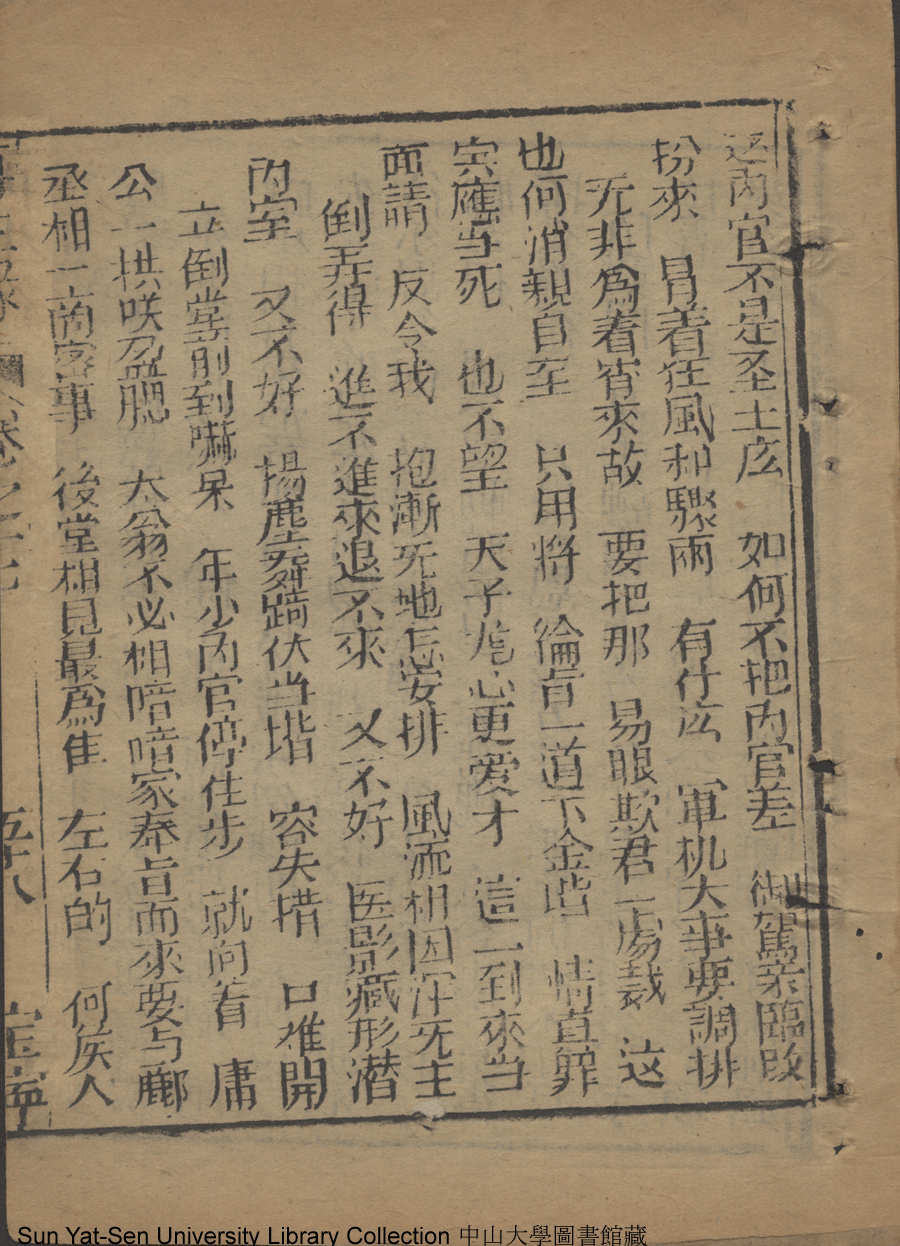 这内官不是圣上庅 如何不把内官差 御駕亲臨改
扮來 冒着狂風和驟雨 有什庅 軍机大事要調排
无非爲着宵來故 要把那 易眼欺君一場裁 这
也何消親自至 只用將 綸旨一道下金階 情真罪
实應当死 也不望 天子龙心更爱才 這一到來当
面請 反令我 抱漸无地怎安排 風流相国浑无主
倒弄得 進不進來退不來 又不好 医影藏形潜
内室 又不好 揚塵舞蹈伏当堦 容失措 口难開
立倒堂前到嚇呆 年少内官停住步 就向着 庸
公一拱咲盈腮 太翁不必相喑喑家奉旨而來要与郦
丞相一商密事 後堂相見最爲佳 左右的 何侯人
卷之十七 五十八
Sun Yat-Sen University Library Collection 中山大學圖書館藏